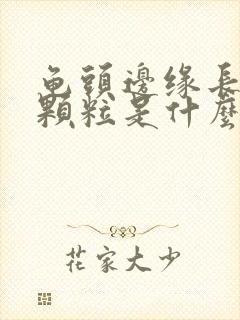 龟頭邊缘長
顆粒是什麼
花家大少